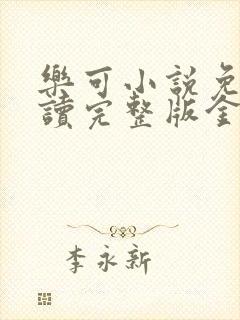 樂可小說免
讀完整版全
李永新